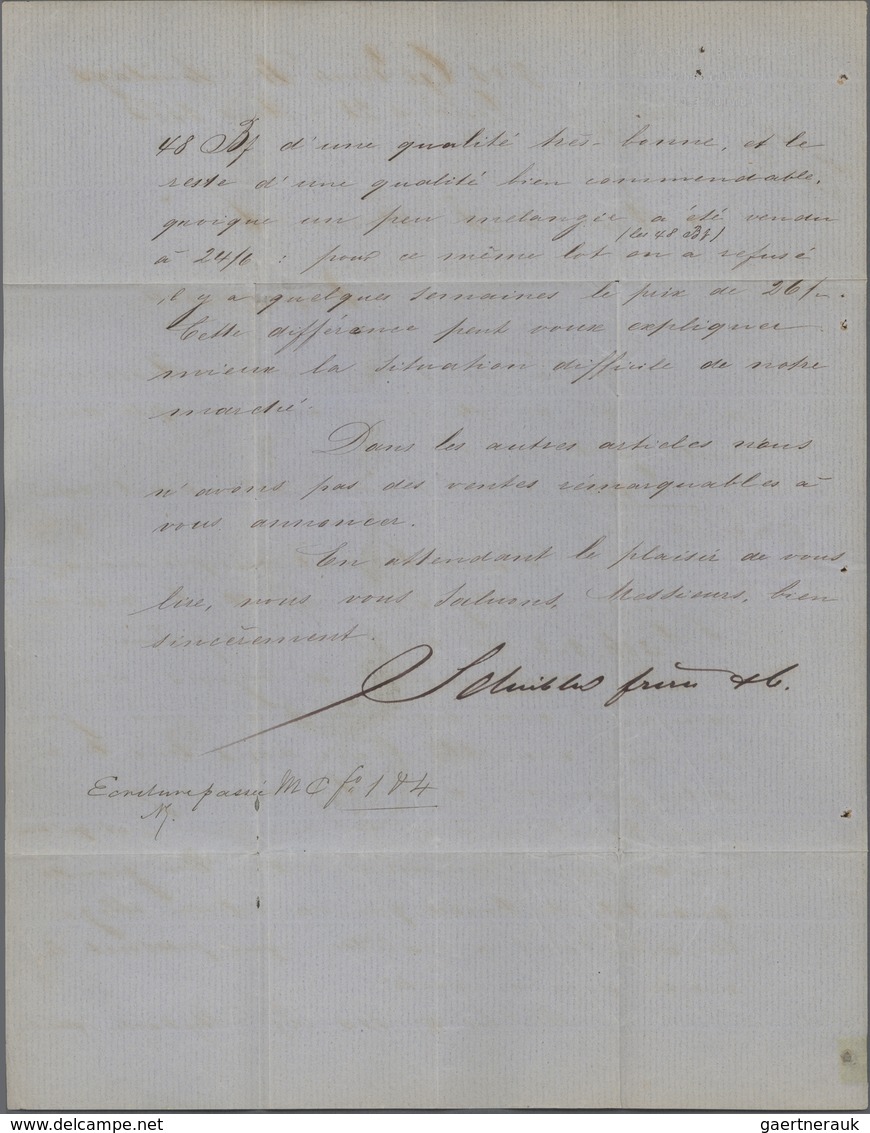 48 Bf d'une qualité très-bonne, et le
reste d'une qualité bien commendable,
quoique un peu mélangée a été vendu
(les 48 Bf)
à 24/6 : pour ce même lot on a refusé
il y a quelques semaines le prix de 26/-.
Cette différence peut vous expliquer
mieux la situation difficile de notre
marché.
Dans les autres articles nous
n'avons pas des ventes rémarquables à
vous annoncer.
En attendant le plaisir de vous
lire, nous vous saluons, Messieurs, bien
sincèrement.
frères & C.
Ecriture passée M C fo. 184
delcampe.net
gaertnerauk